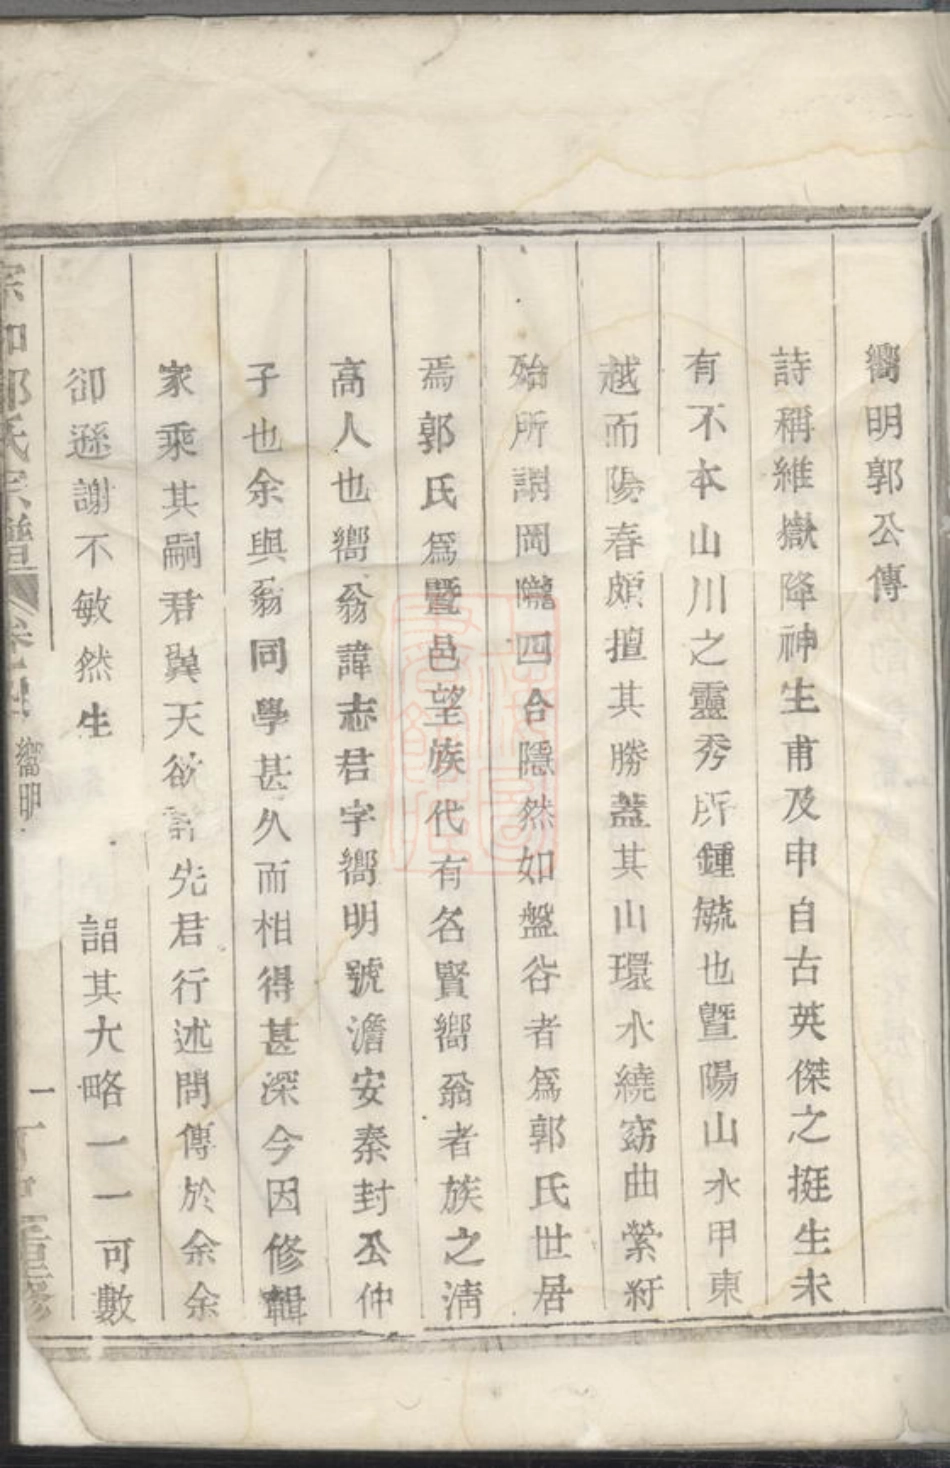 嚮明郭公傳
詩稱維嶽降神生甫及申自古英傑之挺生未
有不本山川之靈秀所鍾毓也暨陽山水甲東
越而陽春頗擅其勝蓋其山環水繞窈曲縈紆
殆所謂岡隴四合隱然如盤谷者爲郭氏世居
焉郭氏爲暨邑望族代有名賢嚮翁者族之淸
高人也嚮翁諱志君字嚮明號澹安秦封公仲
子也余與翁同學甚久而相得甚深今因修輯
家乘其嗣君巽天欲誥先君行述問傳於余余
卻遜謝不敏然生 詔其大略一一可數
郭氏宗譜 嚮明 重修